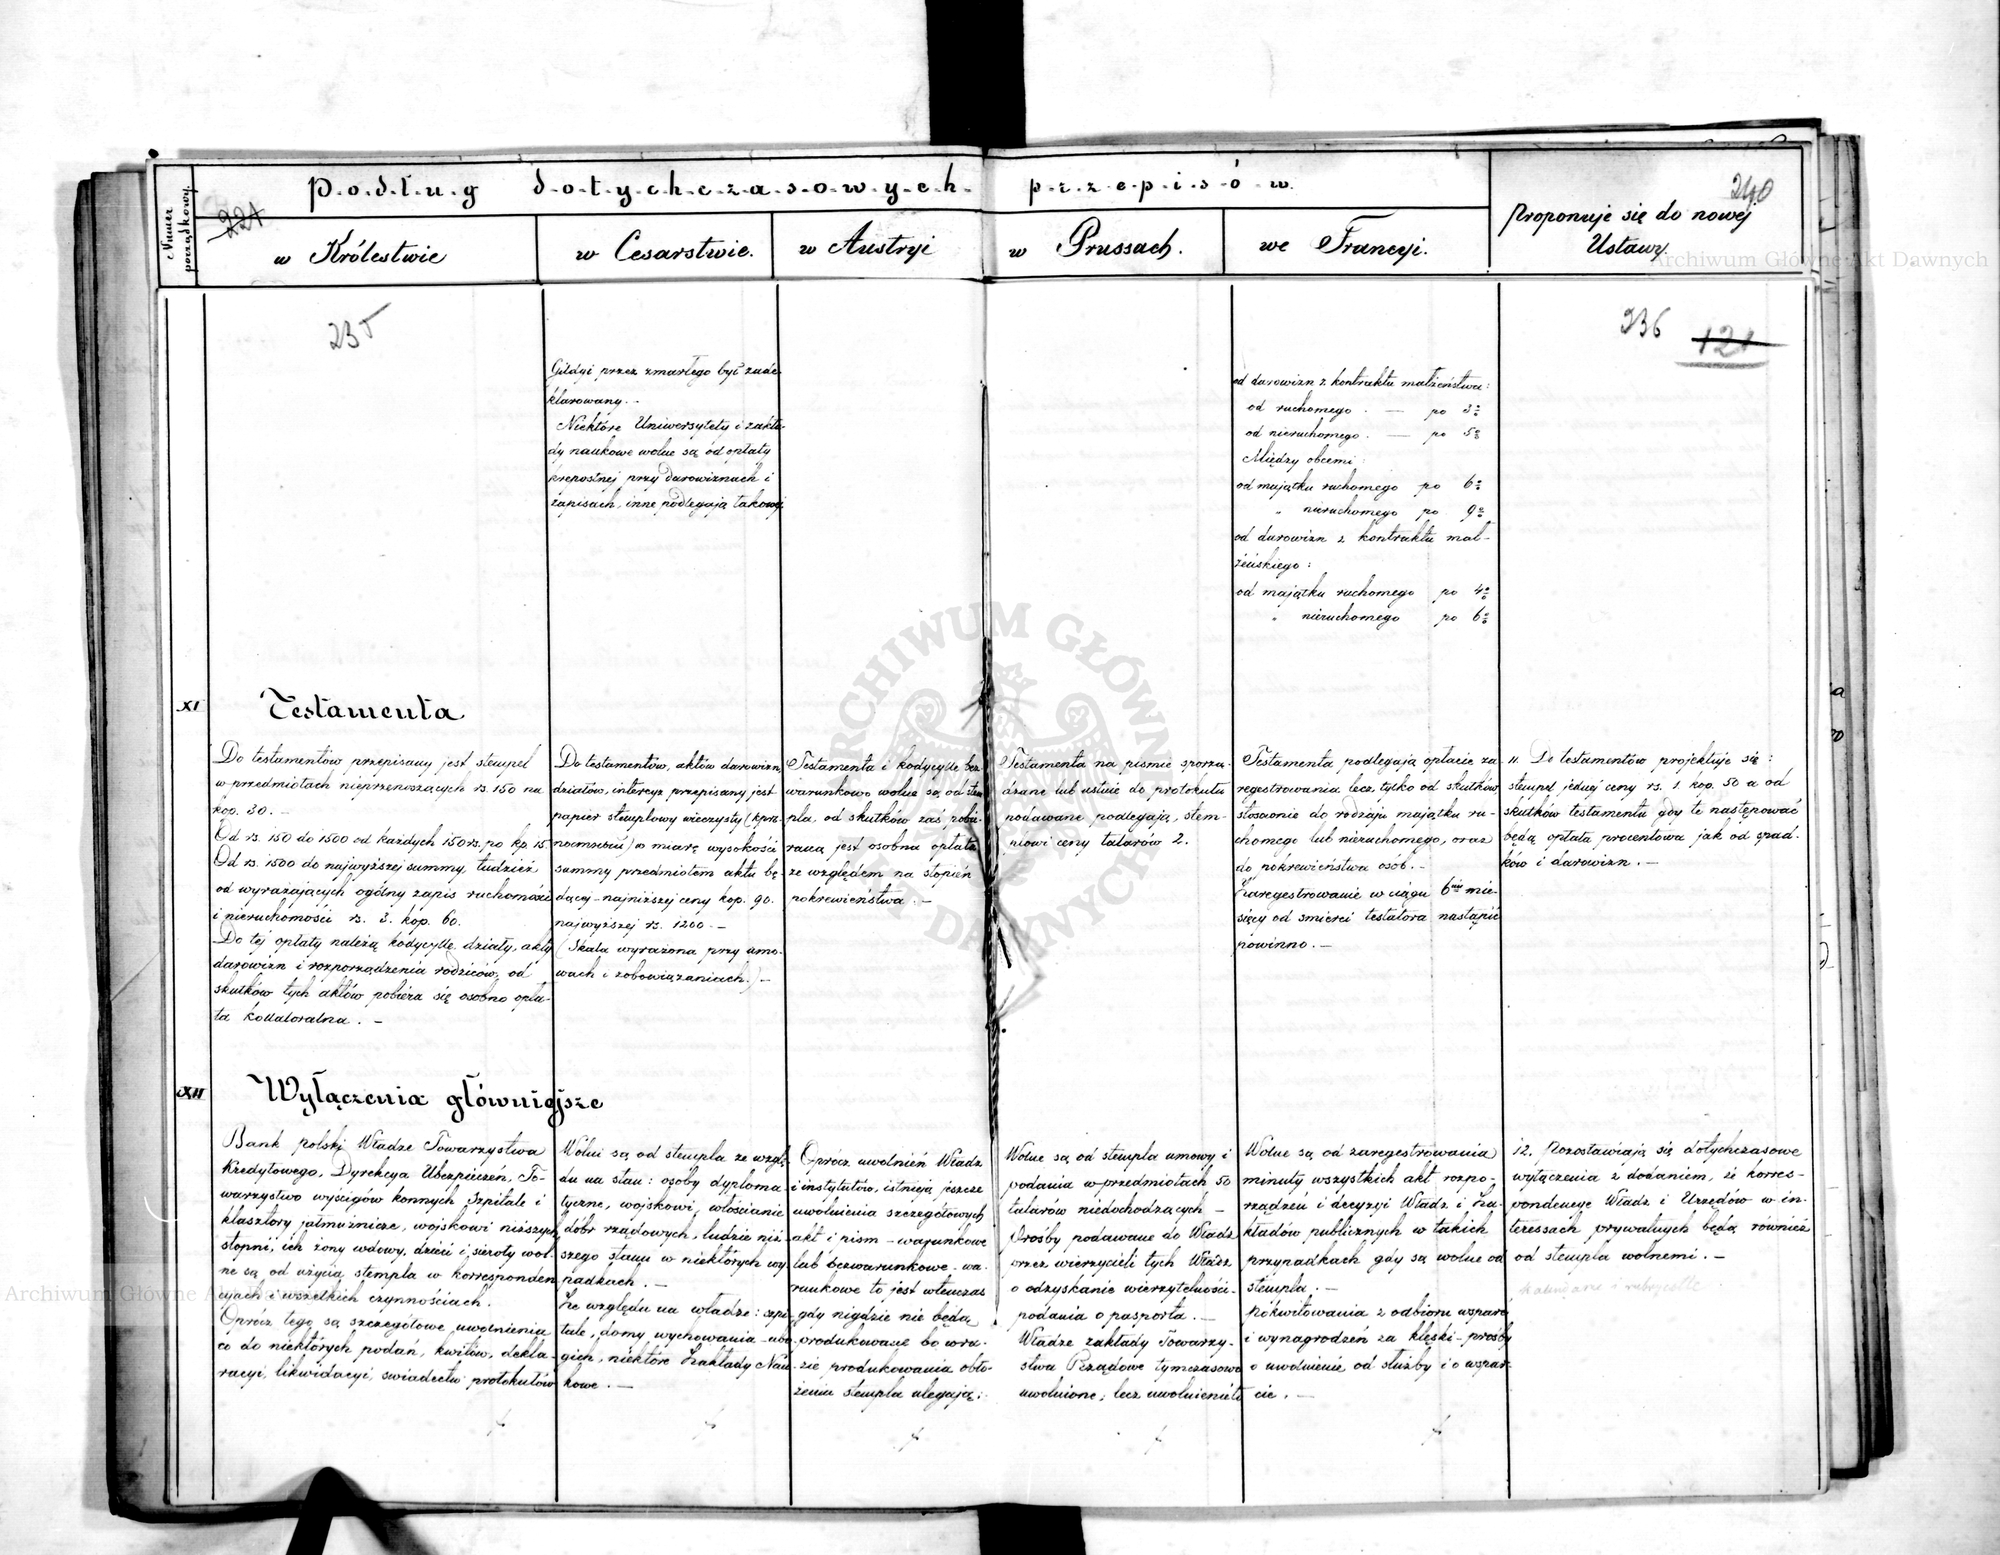 Podług dotychczasowych przepisów
Numer porządkowy
221
240
w Królestwie
w Cesarstwie.
w Austryi
w Prussach.
we Francyi.
Proponuje się do nowej
Ustawy.
235
236
121
Gildyi przez zmarłego być zade-
klarowany. -
Niektóre Uniwersytety i zakła-
dy naukowe wolne są od opłaty
krepostnej przy darowiznach i
zapisach, inne podlegają takowej
od darowizn z kontraktu małżeństwa:
od ruchomego . — po 3%
od nieruchomego . — po 5%
Między obcemi:
od majątku ruchomego po 6%
" nieruchomego po 9%
od darowizn z kontraktu mał-
żeńskiego:
od majątku ruchomego po 4%
" nieruchomego po 6%
XI
Testamenta
Do testamentów przepisany jest stempel
w przedmiotach nieprzenoszących rs. 150 na
kop. 30. -
Od rs. 150 do 1500 od każdych 150 rs. po kp. 15
Od rs. 1500 do najwyższej summy, tudzież
od wyrażających ogólny zapis ruchomości
i nieruchomości rs. 3. kop. 60.
Do tej opłaty należą kodycylle, działy, akty
darowizn i rozporządzenia rodziców, od
skutków tych aktów pobiera się osobno opła-
ta kollateralna. -
Do testamentów, aktów darowizn,
działów, intercyz przepisany jest
papier stemplowy wieczysty
w miarę wysokości
summy przedmiotem aktu bę-
dącej - najniższej ceny kop. 90.
najwyższej rs. 1200. -
(Skala wyrażona przy umo-
wach i zobowiązaniach.) -
Testamenta i kodycylle bez-
warunkowo wolne są od stem-
pla, od skutków zaś pobie-
raną jest osobna opłata
ze względem na stopień
pokrewieństwa. -
Testamenta na piśmie sporzą-
dzane lub ustnie do protokułu
podawane podlegają stem-
plowi ceny talarów 2.
Testamenta podlegają opłacie za-
regestrowania lecz tylko od skutków
stosownie do rodzaju majątku ru-
chomego lub nieruchomego, oraz
do pokrewieństwa osób. -
Zaregestrowanie w ciągu 6ciu mie-
sięcy od śmierci testatora nastąpić
powinno. -
11. Do testamentów projektuje się:
stempel jednej ceny rs. 1. kop. 50 a od
skutków testamentu gdy te następować
będą opłata procentowa jak od spad-
ków i darowizn. -
XII
Wyłączenia główniejsze
Bank polski, Władze Towarzystwa
Kredytowego, Dyrekcya Ubezpieczeń, To-
warzystwo wyścigów konnych, Szpitale i
klasztory jałmużnicze, wojskowi niższych
stopni, ich żony wdowy, dzieci i sieroty wol-
ne są od użycia stempla w korresponden-
cyach i wszelkich czynnościach.
Oprócz tego są szczegółowe uwolnienia
co do niektórych podań, kwitów, dekla-
racyi, likwidacyi, świadectw protokułów
Wolni są od stempla ze wzglę-
du na stan: osoby dyploma-
tyczne, wojskowi, włościanie
dóbr rządowych, ludzie niż-
szego stanu w niektórych wy-
padkach. -
Ze względu na władze: szpi-
tale, domy wychowania ubo-
gich, niektóre Zakłady Nau-
kowe. -
Oprócz uwolnień Władz
i instytutów, istnieją jeszcze
uwolnienia szczegółowych
akt i pism - warunkowe
lub bezwarunkowe - wa-
runkowe to jest wtenczas
gdy nigdzie nie będą
produkowane bo w ra-
zie produkowania obło-
żeniu stempla ulegają;
Wolne są od stempla umowy i
podania w przedmiotach 50
talarów niedochodzących -
Prośby podawane do Władz
przez wierzycieli tych Władz
o odzyskanie wierzytelności -
podania o pasporta. -
Władze zakłady Towarzy-
stwa Rządowe tymczasowo
uwolnione; lecz uwolnienie to
Wolne są od zaregestrowania
minuty wszystkich akt rozpo-
rządzeń i decyzyi Władz i Za-
kładów publicznych w takich
przypadkach gdy są wolne od
stempla. -
Pokwitowania z odbioru wsparć
i wynagrodzeń za klęski - prośby
o uwolnienie od służby i o wspar-
cie. -
12. Pozostawiają się dotychczasowe
wyłączenia z dodaniem, że korres-
pondencye Władz i Urzędów w in-
teressach prywatnych będą również
od stempla wolnemi. -
Archiwum Główne Akt Dawnych
Archiwum Główne Akt Dawnych
ARCHIWUM GŁÓWNE AKT DAWNYCH